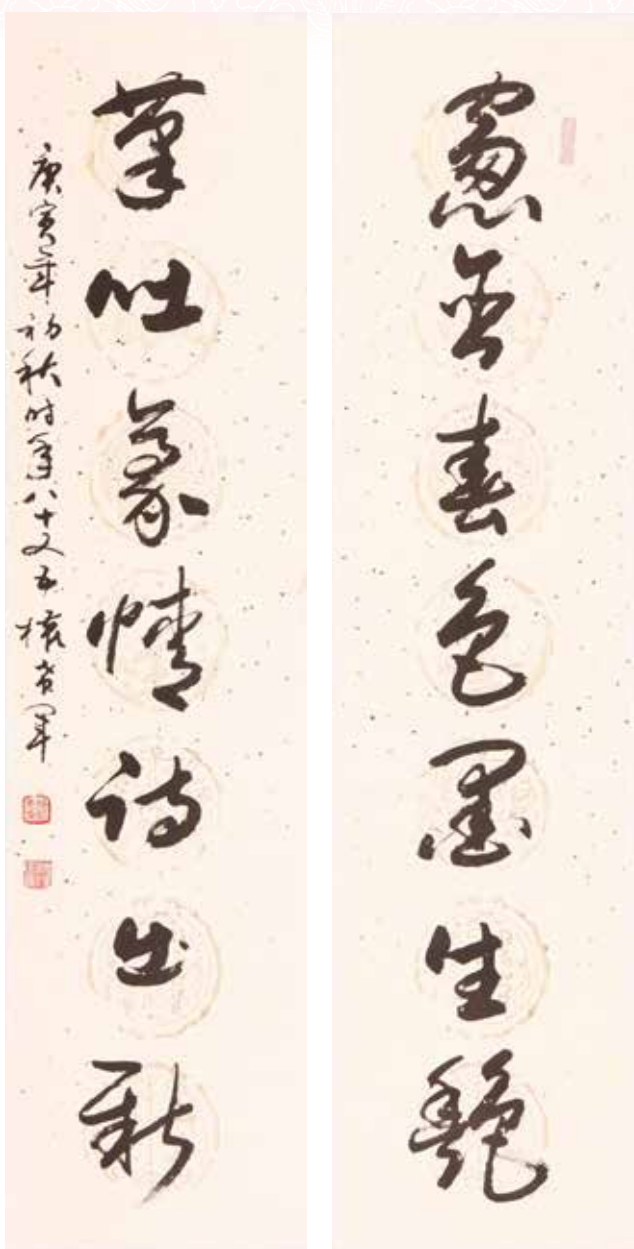 窻含春色墨生艷
筆吐豪情詩出新
庚寅年初秋時年八十又五